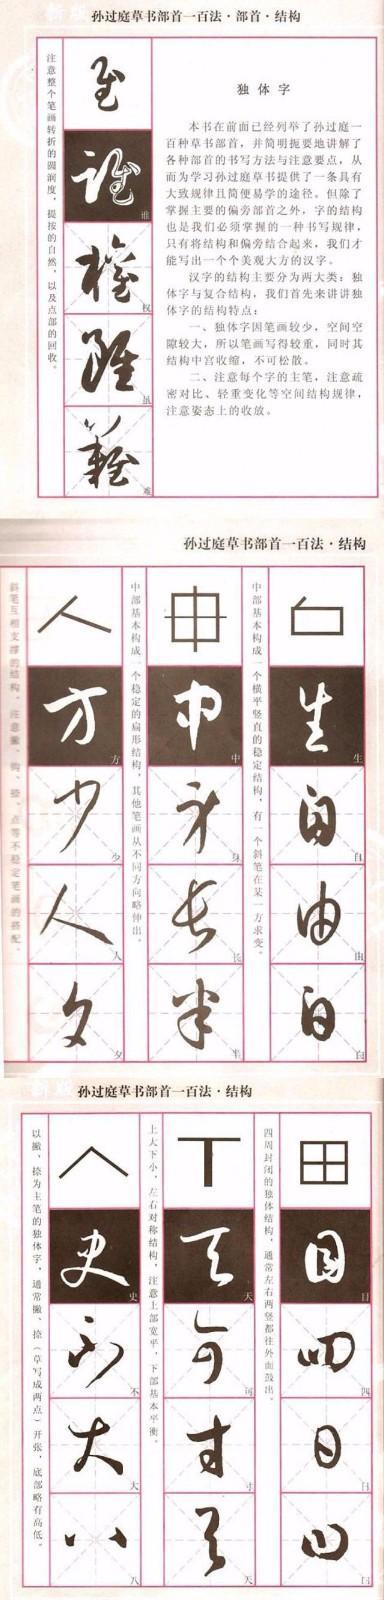 新版 孙过庭草书部首一百法·部首·结构
独体字
本书在前面已经列举了孙过庭一
百种草书部首，并简明扼要地讲解了
各种部首的书写方法与注意要点，从
而为学习孙过庭草书提供了一条具有
大致规律且简便易学的途径。但除了
掌握主要的偏旁部首之外，字的结构
也是我们必须掌握的一种书写规律，
只有将结构和偏旁结合起来，我们才
能写出一个个美观大方的汉字。
汉字的结构主要分为两大类：独
体字与复合结构，我们首先来讲讲独
体字的结构特点：
一、独体字因笔画较少，空间空
隙较大，所以笔画写得较重，同时其
结构中宫收缩，不可松散。
二、注意每个字的主笔，注意疏
密对比、轻重变化等空间结构规律，
注意姿态上的收放。
谁
权
虽
难
注意整个笔画转折的圆润度，提按的自然，以及点部的回收。
孙过庭草书部首一百法·结构
生
自
由
白
中部基本构成一个横平竖直的稳定结构，有一个斜笔在某一方求变。
中
身
长
半
中部基本构成一个稳定的扁形结构，其他笔画从不同方向略伸出。
方
少
人
夕
斜笔互相支撑的结构，注意撇、钩、捺、点等不稳定笔画的搭配。
新版 孙过庭草书部首一百法·结构
目
四
日
四周封闭的独体结构，通常左右两竖都往外面鼓出。
天
可
寸
天
上大下小，左右对称结构，注意上部宽平，下部基本平衡。
史
不
大
八
以撇、捺为主笔的独体字，通常撇、捺（草写成两点）开张，底部略有高低。